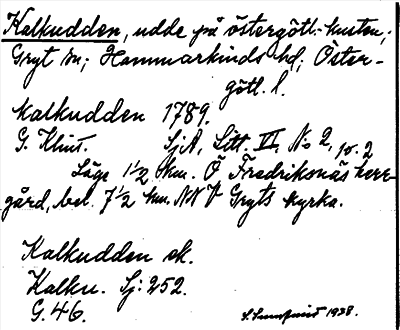 Kalkudden, udde på östergötl.-kusten,
Gryt sn; Hammarkinds hd; Öster-
götl. l.
Kalkudden 1789.
G. Klint. SjA, Litt. III, No 2, pr. 2
Läge 1 1/2 km. Ö Fredriksnäs herr-
gård, bel. 7 1/2 km. NNV Gryts kyrka.
Kalkudden ek.
Kalku. Sj: 252.
G. 46.
1938.